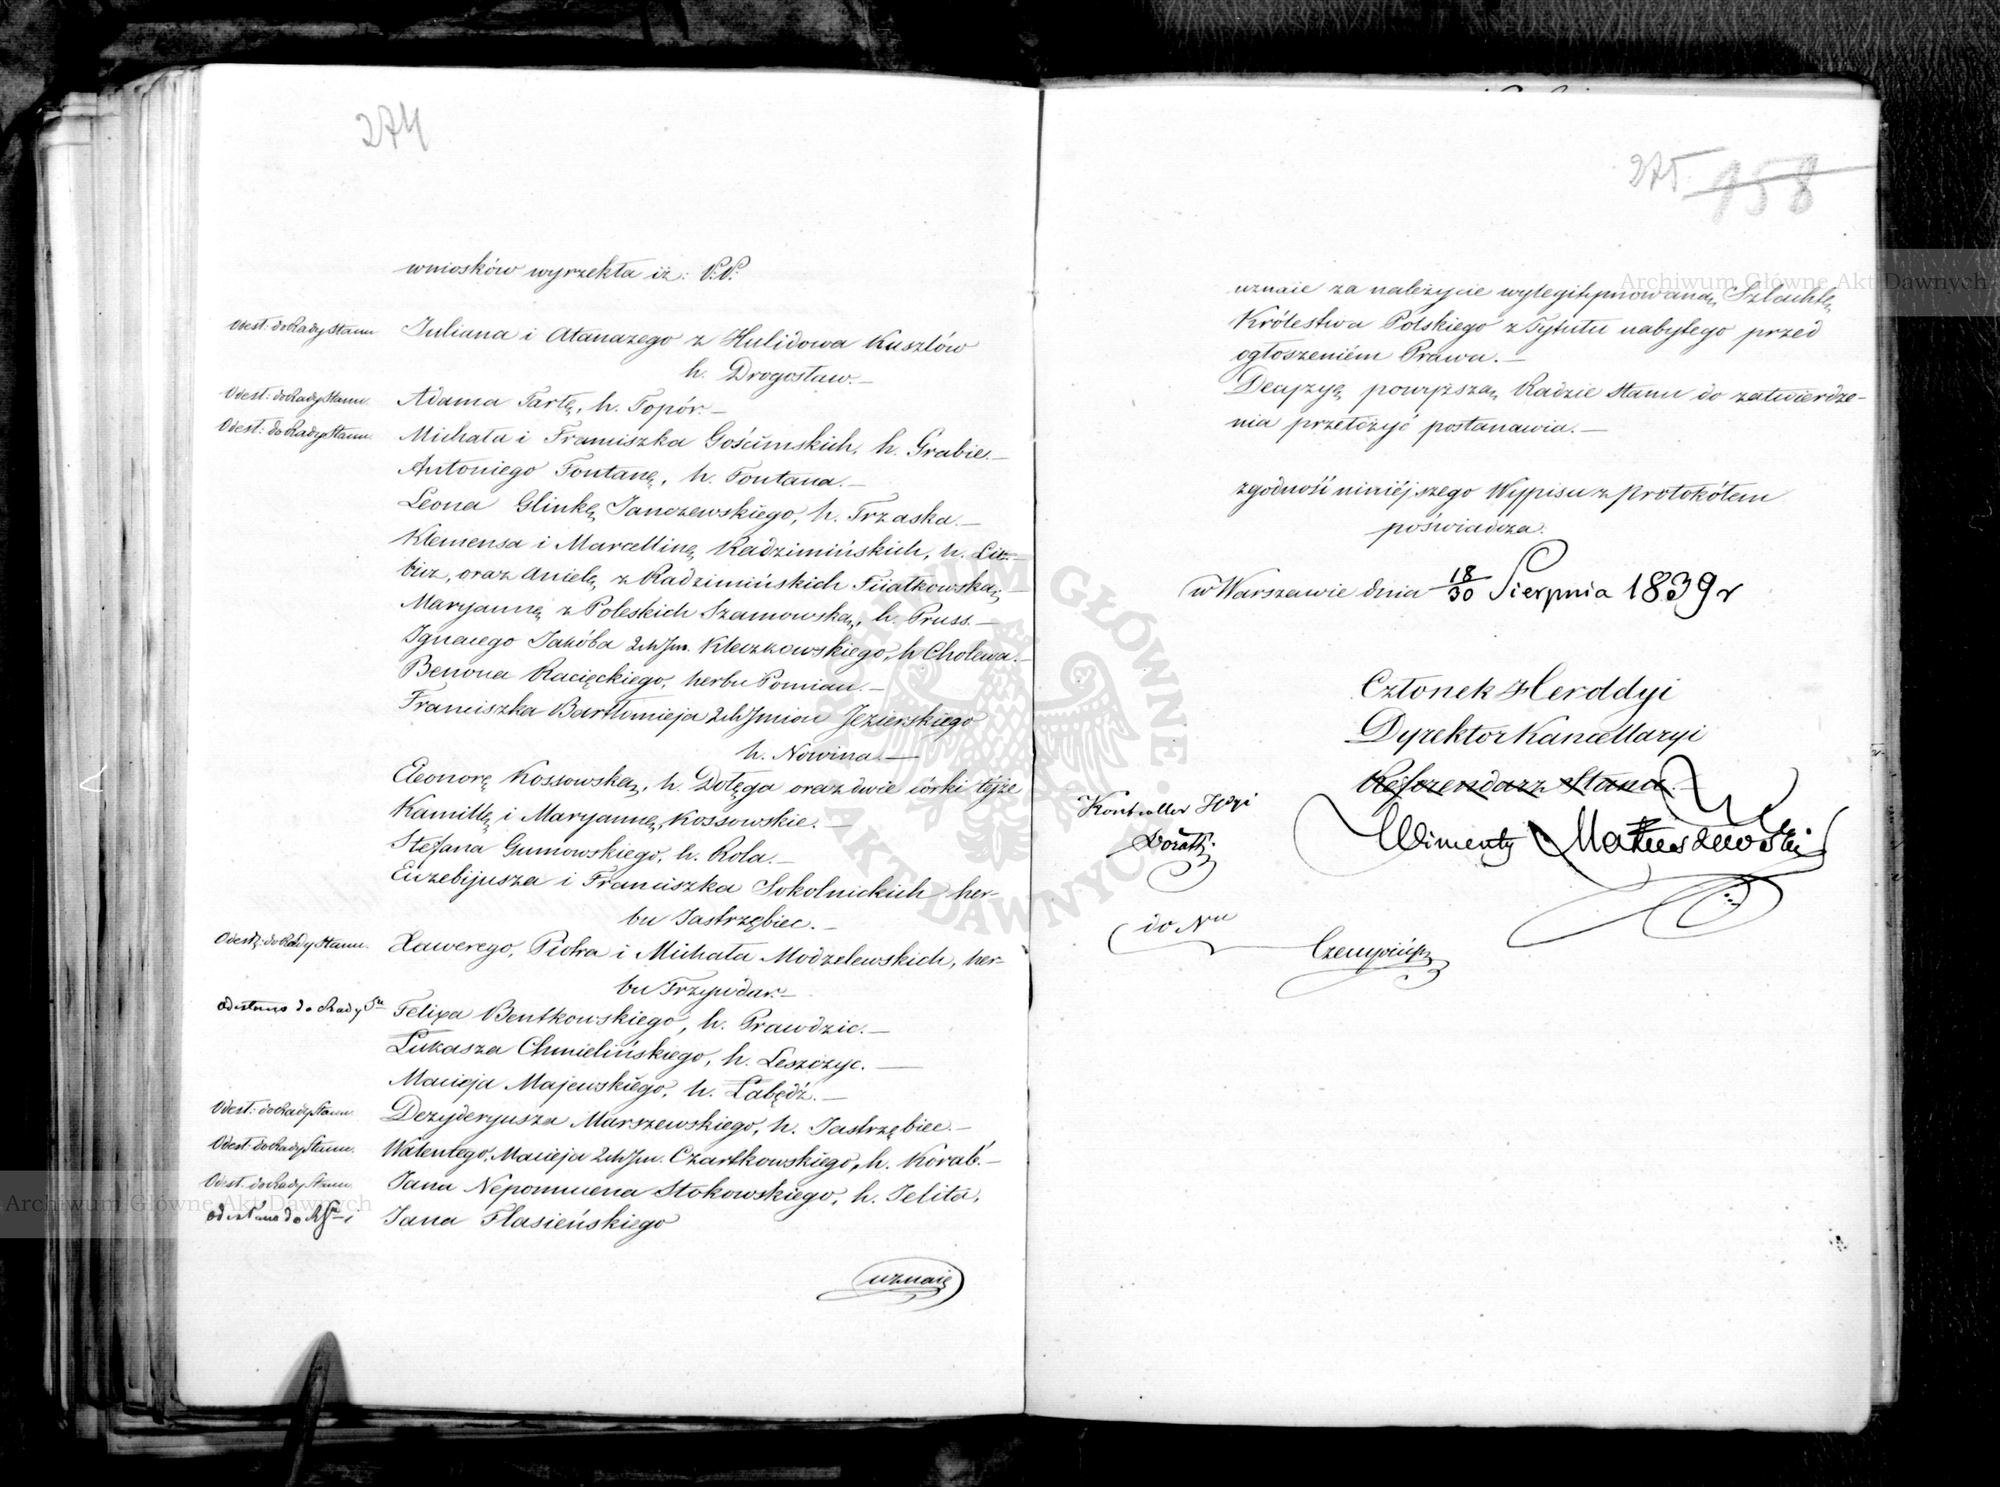 274
wniosków wyrzekła iż: P.P.
Odesł: do Rady Stanu Juliana i Atanazego z Hulidowa Kuszlów
h. Drogosław.—
Odesł: do Rady Stanu. Adama Tartę, h. Topór—
Odesł: do Rady Stanu. Michała i Franciszka Gościmskich, h. Grabie.—
Antoniego Fontanę, h. Fontana.—
Leona Glinkę Janczewskiego, h. Trzaska.—
Klemensa i Marcellinę Radzimińskich, h.
oraz Anielę z Radzimińskich Fiiałkowską,—
Maryannę z Poleskich Szamowską, h. Pruss.—
Ignacego Jakóba 2ch Jm. Kleczkowskiego, h Cholewa.—
Benona Racięckiego, herbu Pomian.—
Franciszka Bartłomieja 2ch Jmion Jezierskiego
h. Nowina.—
Eleonorę Kossowską, h. Dołęga oraz dwie córki téjże
Kamillę i Maryannę Kossowskie.—
Stefana Gumowskiego, h. Rola.—
Euzebijusza i Franciszka Sokolnickich her-
bu Jastrzębiec.—
Odesł: do Rady Stanu. Xawerego, Piotra i Michała Modzelewskich, her-
bu Trzywdar.—
odesłano do Rady Stu Felixa Bentkowskiego, h. Prawdzic.—
Łukasza Chmielińskiego, h. Leszczyc.—
Macieja Majewskiego, h. Łabędź.—
Odesł: do Rady Stanu. Dezyderyusza Marszewskiego, h. Jastrzębiec.—
Odesł: do Rady Stanu. Walentego, Macieja 2ch Jm. Czartkowskiego, h. Korab.—
Odesł. do Rady Stanu. Jana Nepomucena Stokowskiego, h. Jelita,
odesłano do Jana Flasieńskiego
uznaie
275. 158
uznaie za należycie wylegitymowaną Szlachtę
Królestwa Polskiego z Tytułu nabytego przed
ogłoszeniem Prawa.—
Decyzyą powyższą Radzie Stanu do zatwierdze-
nia przełożyć postanawia.—
zgodność niniéjszego Wypisu z Protokółem
poświadcza.
w Warszawie dnia 18/30 Sierpnia 1839 r
Członek Heroldyi
Dyrektor Kancellaryi
Referendarz Stanu.
Kontroller Hdyi
Klimenty Matuszewski
do Nu
Archiwum Główne Akt Dawnych
Archiwum Główne Akt Dawnych
ARCHIWUM GŁÓWNE AKT DAWNYCH